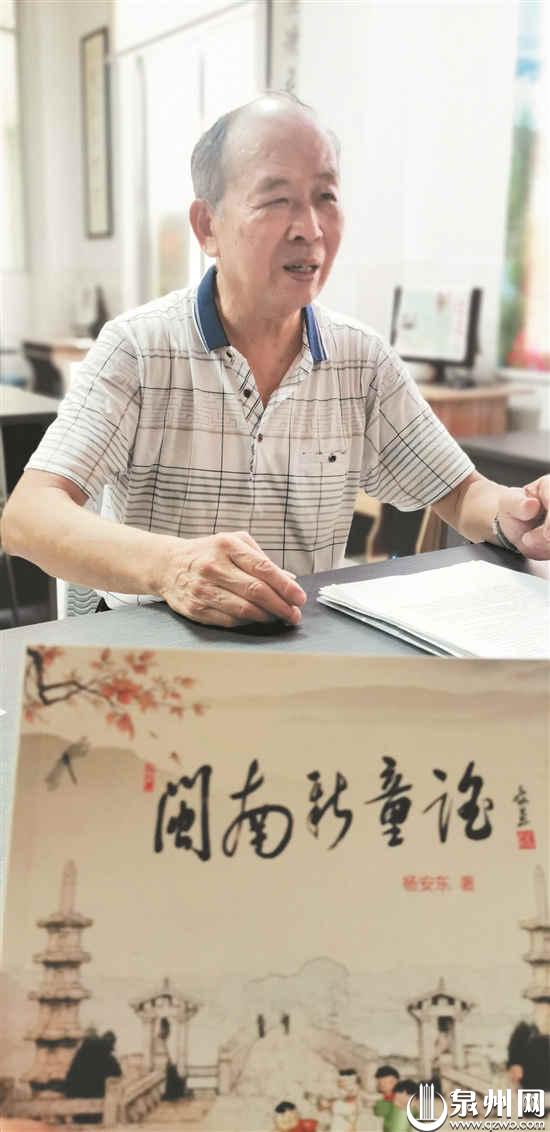 闽南新童谣
杨安东 著
泉州网
www.qzwb.com